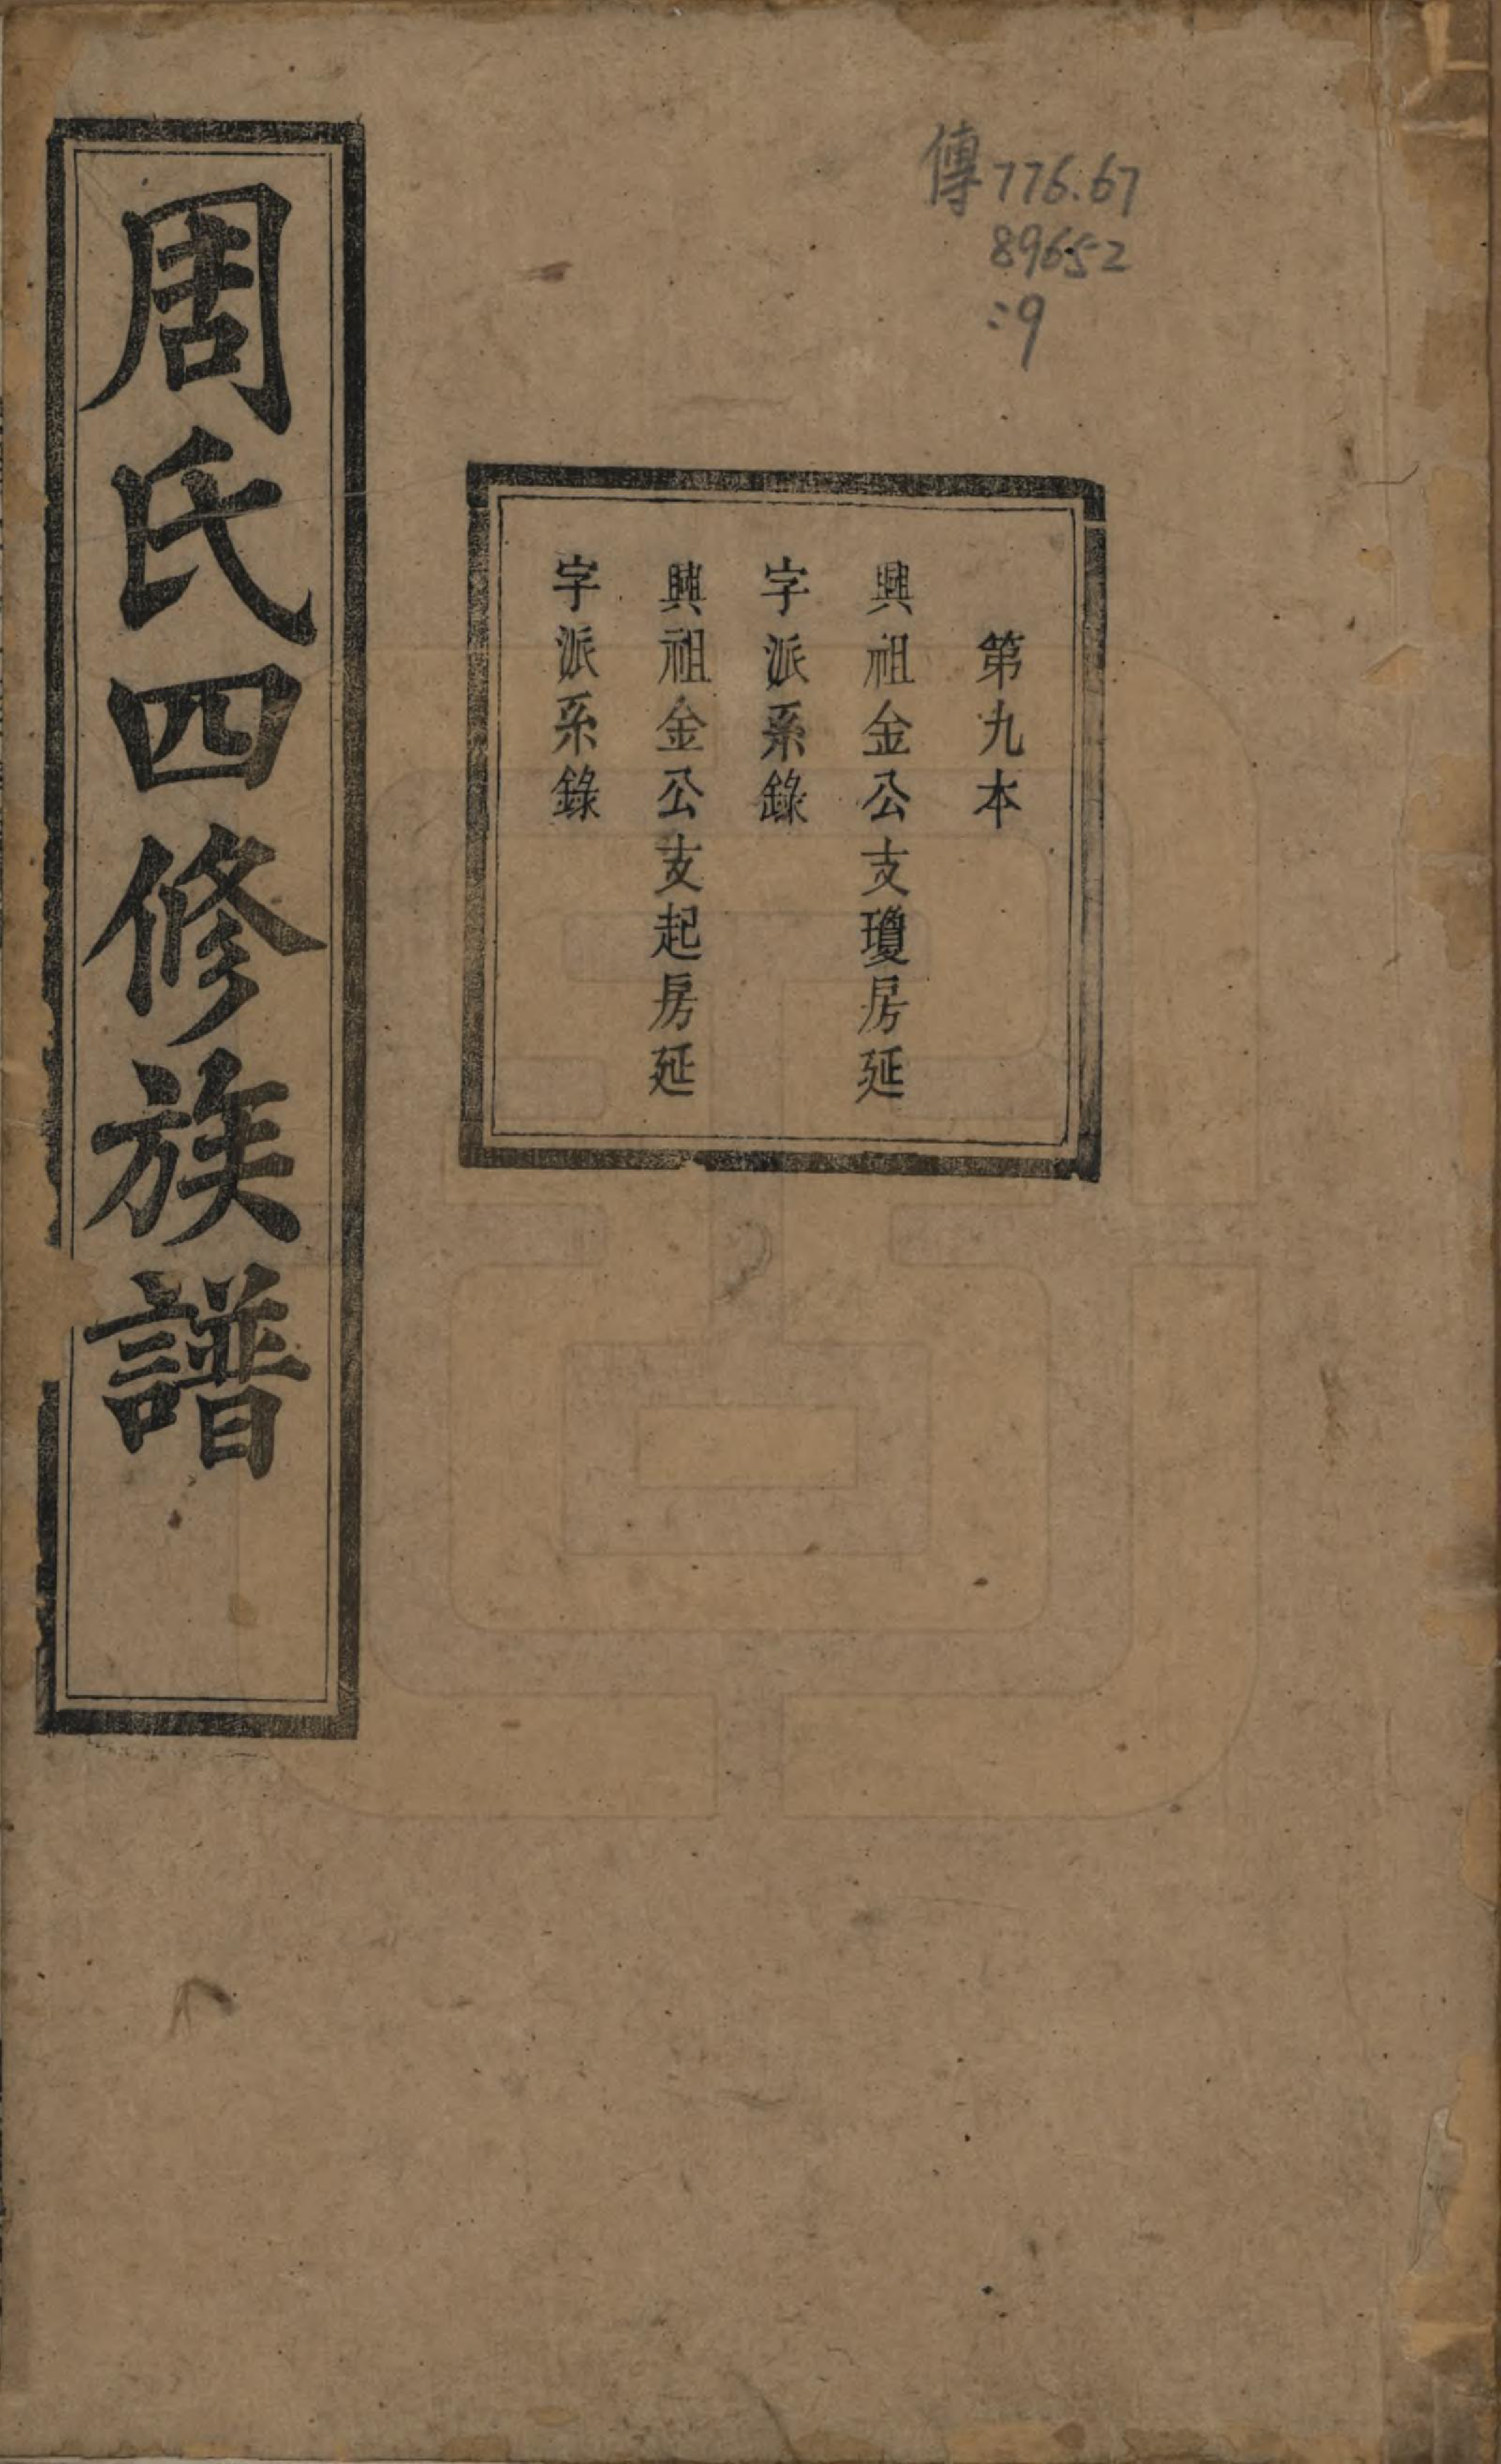 傳776.67
89652
:9
第九本
興祖金公支瓊房延
字派系錄
興祖金公支起房延
字派系錄
周氏四修族譜